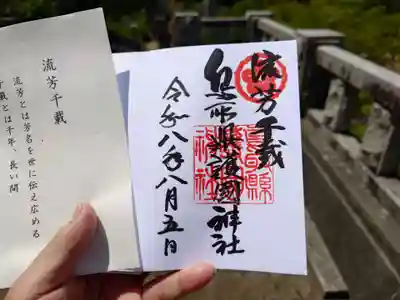 流芳千載
流芳とは芳名を世に伝え広める
千載とは千年、長い間
流芳千載
県護國神社
令和八年八月五日